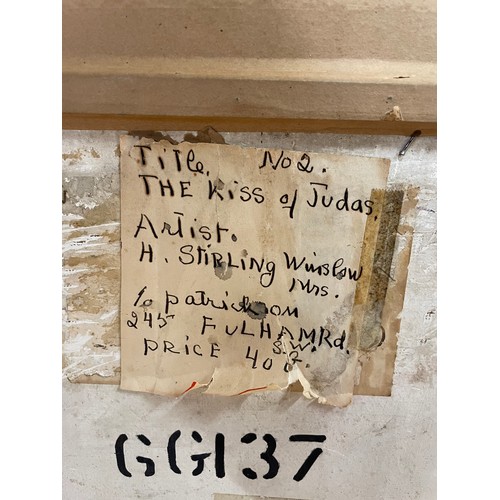 Title. No 2.
THE Kiss of Judas.
Artist.
H. STIRLING Winslow
Mrs.
℅ patrickson
245 FULHAM Rd.
S.W.
PRICE 40
GG137